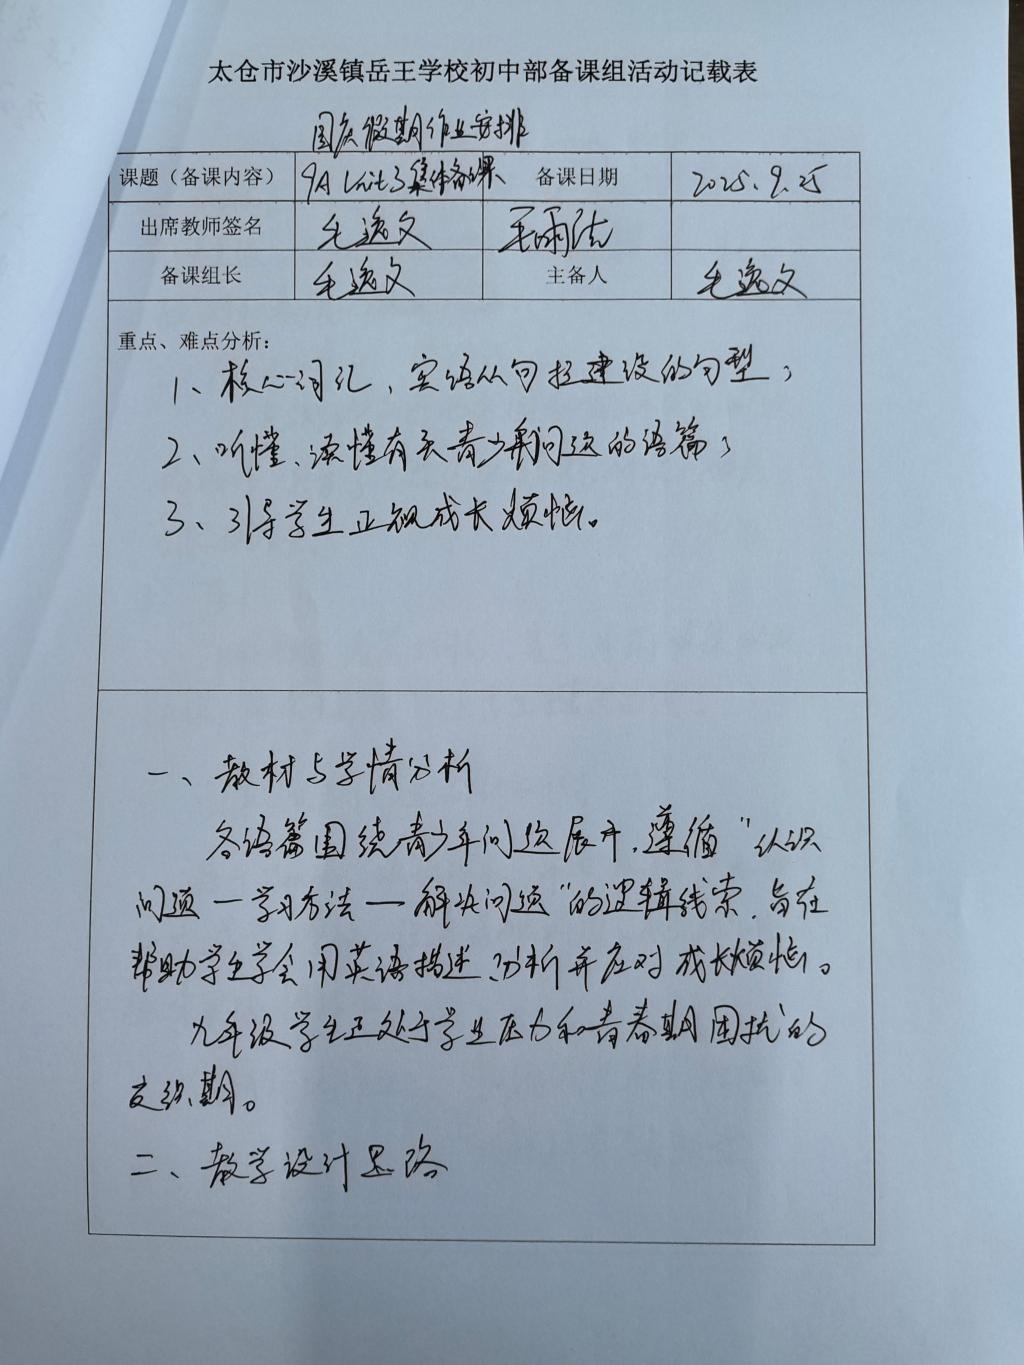 太仓市沙溪镇岳王学校初中部备课组活动记载表
国庆假期作业安排
课题（备课内容） 9A Unit 3 集体备课 备课日期 2025.9.25
出席教师签名 毛逸文 王雨洁
备课组长 毛逸文 主备人 毛逸文
重点、难点分析：
1、核心词汇、宾语从句提建议的句型；
2、听懂、读懂有关青少年问题的语篇；
3、引导学生正视成长烦恼。
一、教材与学情分析
各语篇围绕青少年问题展开，遵循“认识
问题—学习方法—解决问题”的逻辑线索，旨在
帮助学生学会用英语描述、分析并应对成长烦恼。
九年级学生正处于学业压力和青春期困扰的
交织期。
二、教学设计思路